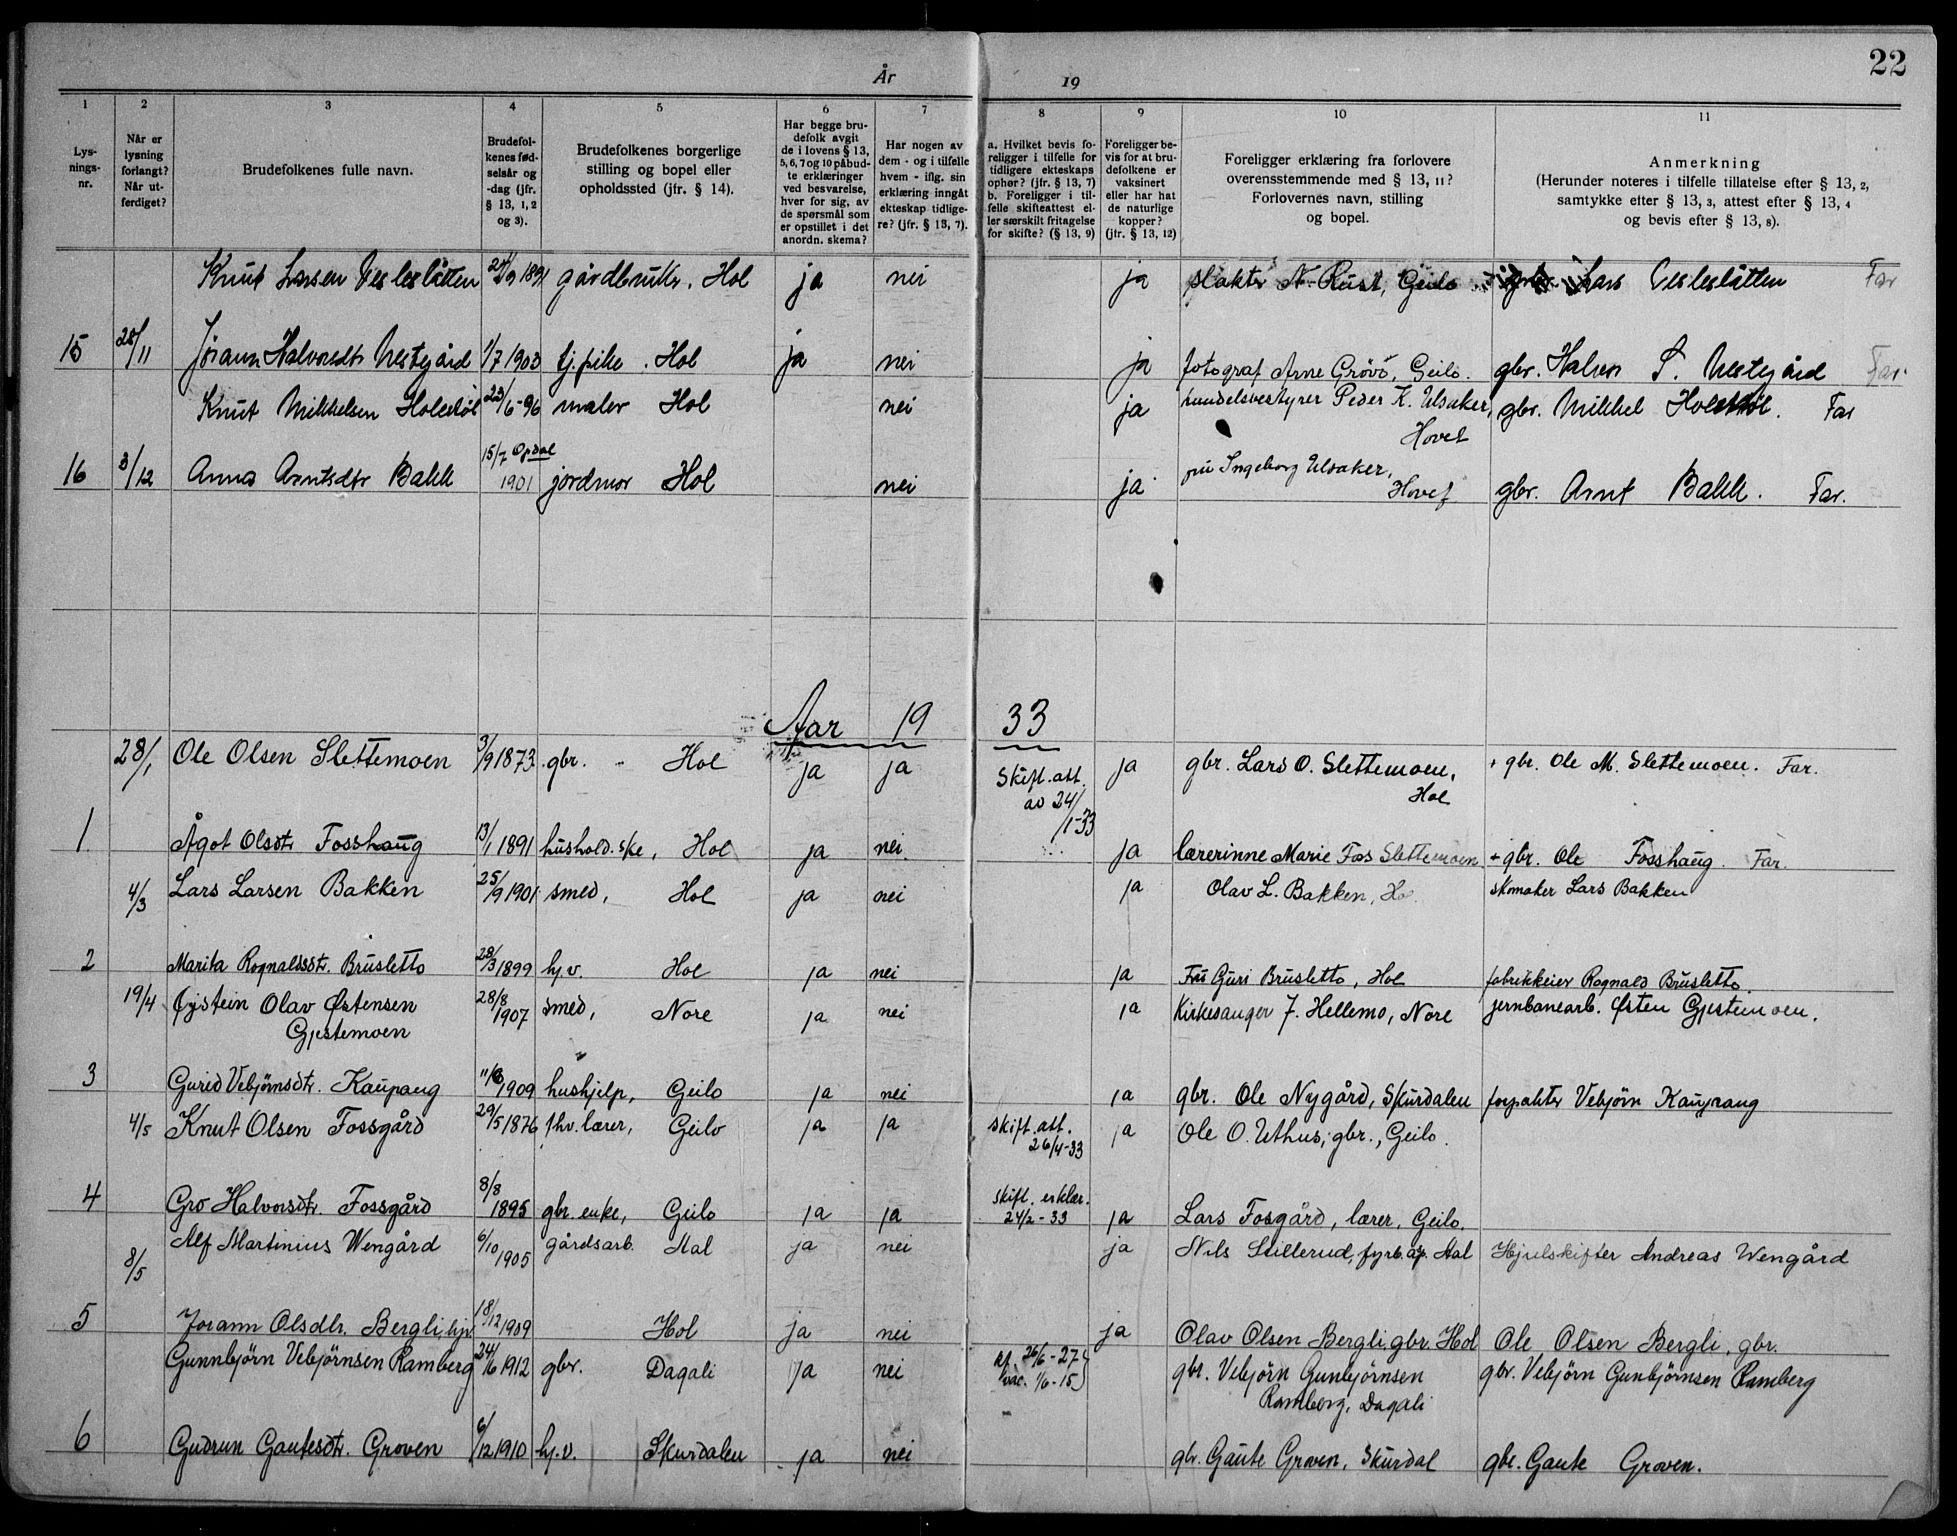 22
År
19
1
2
3
4
5
6
7
8
9
10
11
Lysningsnr.
Når er lysning forlangt? Når utferdiget?
Brudefolkenes fulle navn.
Brudefolkenes fødselsår og -dag (jfr. § 13, 1, 2 og 3).
Brudefolkenes borgerlige stilling og bopel eller opholdssted (jfr. § 14).
Har begge brudefolk avgit de i lovens § 13, 5, 6, 7 og 10 påbudte erklæringer ved besvarelse, hver for sig, av de spørsmål som er opstillet i det anordn. skema?
Har nogen av dem - og i tilfelle hvem - iflg. sin erklæring inngått ekteskap tidligere? (jfr. § 13, 7).
a. Hvilket bevis foreligger i tilfelle for tidligere ekteskaps ophør? (jfr. § 13, 7) b. Foreligger i tilfelle skifteattest eller særskilt fritagelse for skifte? (§ 13, 9)
Foreligger bevis for at brudefolkene er vaksinert eller har hat de naturlige kopper? (jfr. § 13, 12)
Foreligger erklæring fra forlovere overensstemmende med § 13, 11? Forlovernes navn, stilling og bopel.
Anmerkning (Herunder noteres i tilfelle tillatelse efter § 13, 2, samtykke efter § 13, 3, attest efter § 13, 4 og bevis efter § 13, 8).
Knut Larsen Vesleslåtten 24/9 1891 gårdbruker. Hol ja nei ja slakter N. Rust, Geilo Lars Vesleslåtten Far
15 28/11 Jørann Halvorsdtr Nestegård 1/7 1903 tj. pike . Hol ja nei ja fotograf Arne Grøvo, Geilo. gbr. Halvor S. Nestegård Far
Knut Mikkelsen Holestøl 23/6-96 maler Hol nei ja handelsbestyrer Peder K. Ulsaker, Hovet gbr. Mikkel Holestøl. Far
16 3/12 Anna Arntsdtr Bakk 15/7 Opdal 1901 jordmor Hol nei ja fru Ingeborg Ulsaker, Hovet gbr. Arnt Bakk. Far.
Aar 19 33
28/1 Ole Olsen Slettemoen 3/9 1873 gbr. - Hol ja ja Skift. att. av 24/1-33 ja gbr. Lars O. Slettemoen, Hol + gbr. Ole M. Slettemoen. Far.
1. Ågot Olsdtr Fosshaug 13/1 1891 hushold.ske, Hol ja nei. ja lærerinne Marie Fos Slettemoen + gbr. Ole Fosshaug. Far.
4/3 Lars Larsen Bakken 25/9 1901 smed, Hol ja nei ja Olav L. Bakken, Ho skomaker Lars Bakken
2 Marita Rognaldsdtr. Brusletto 28/3 1899 hj.v. Hol ja nei ja Fru Guri Brusletto, Hol fabrikkeier Rognald Brusletto.
19/4 Øystein Olav Østensen Gjestemoen 28/8 1907 smed, Nore ja nei ja Kirkesanger J. Hellemo, Nore jernbanearb. Østen Gjestemoen.
3 Gurid Vebjørnsdtr. Kaupang 11/6 1909 hushjelp, Geilo ja nei ja gbr. Ole Nygård, Skurdalen forpakter Vebjørn Kaupang
4/5 Knut Olsen Fossgård 29/5 1876 fhv. lærer, Geilo ja ja skift. att. 26/4-33 ja Ole O. Uthus, gbr., Geilo.
4 Gro Halvorsdtr. Fossgård 8/8 1895 gbr. enke, Geilo ja ja skift. erklær. 24/2-33 ja Lars Fosgård, lærer, Geilo.
8/5 Alf Martinius Wengård 6/10 1905 gårdsarb. Aal ja nei ja Nils Lillerud, fyrb. asp. Aal Hjulskifter Andreas Wengård
5 Jorann Olsdtr. Bergli, hjv. 18/12 1909 Hol ja nei ja Olav Olsen Bergli, gbr. Hol Ole Olsen Bergli, gbr.
Gunnbjørn Vebjørnsen Ramberg 24/6 1912 gbr. Dagali ja nei kf. 26/6-27 vac. 1/6-15 gbr. Vebjørn Gunbjørnsen Ramberg, Dagali gbr. Vebjørn Gunbjørnsen Ramberg
6 Gudrun Gautesdtr. Groven 6/12 1910 hj.v. Skurdalen ja nei gbr. Gaute Groven, Skurdal gbr. Gaute Groven.